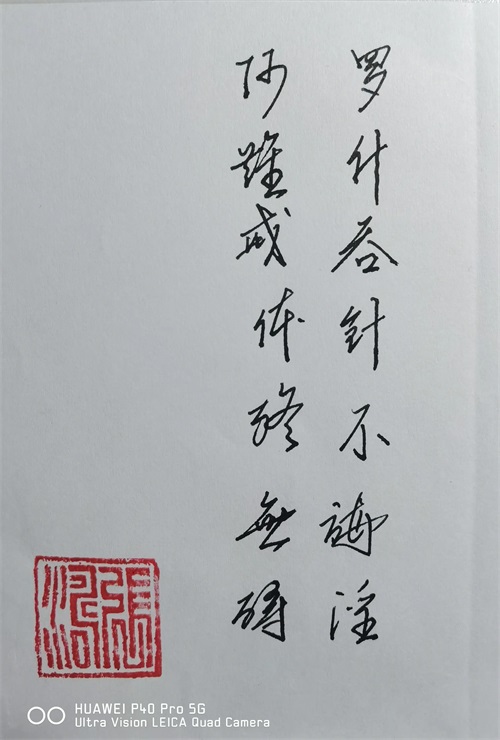 罗什吞針不諱淫
阿難戒体終無碍
HUAWEI P40 Pro 5G
Ultra Vision LEICA Quad Camera